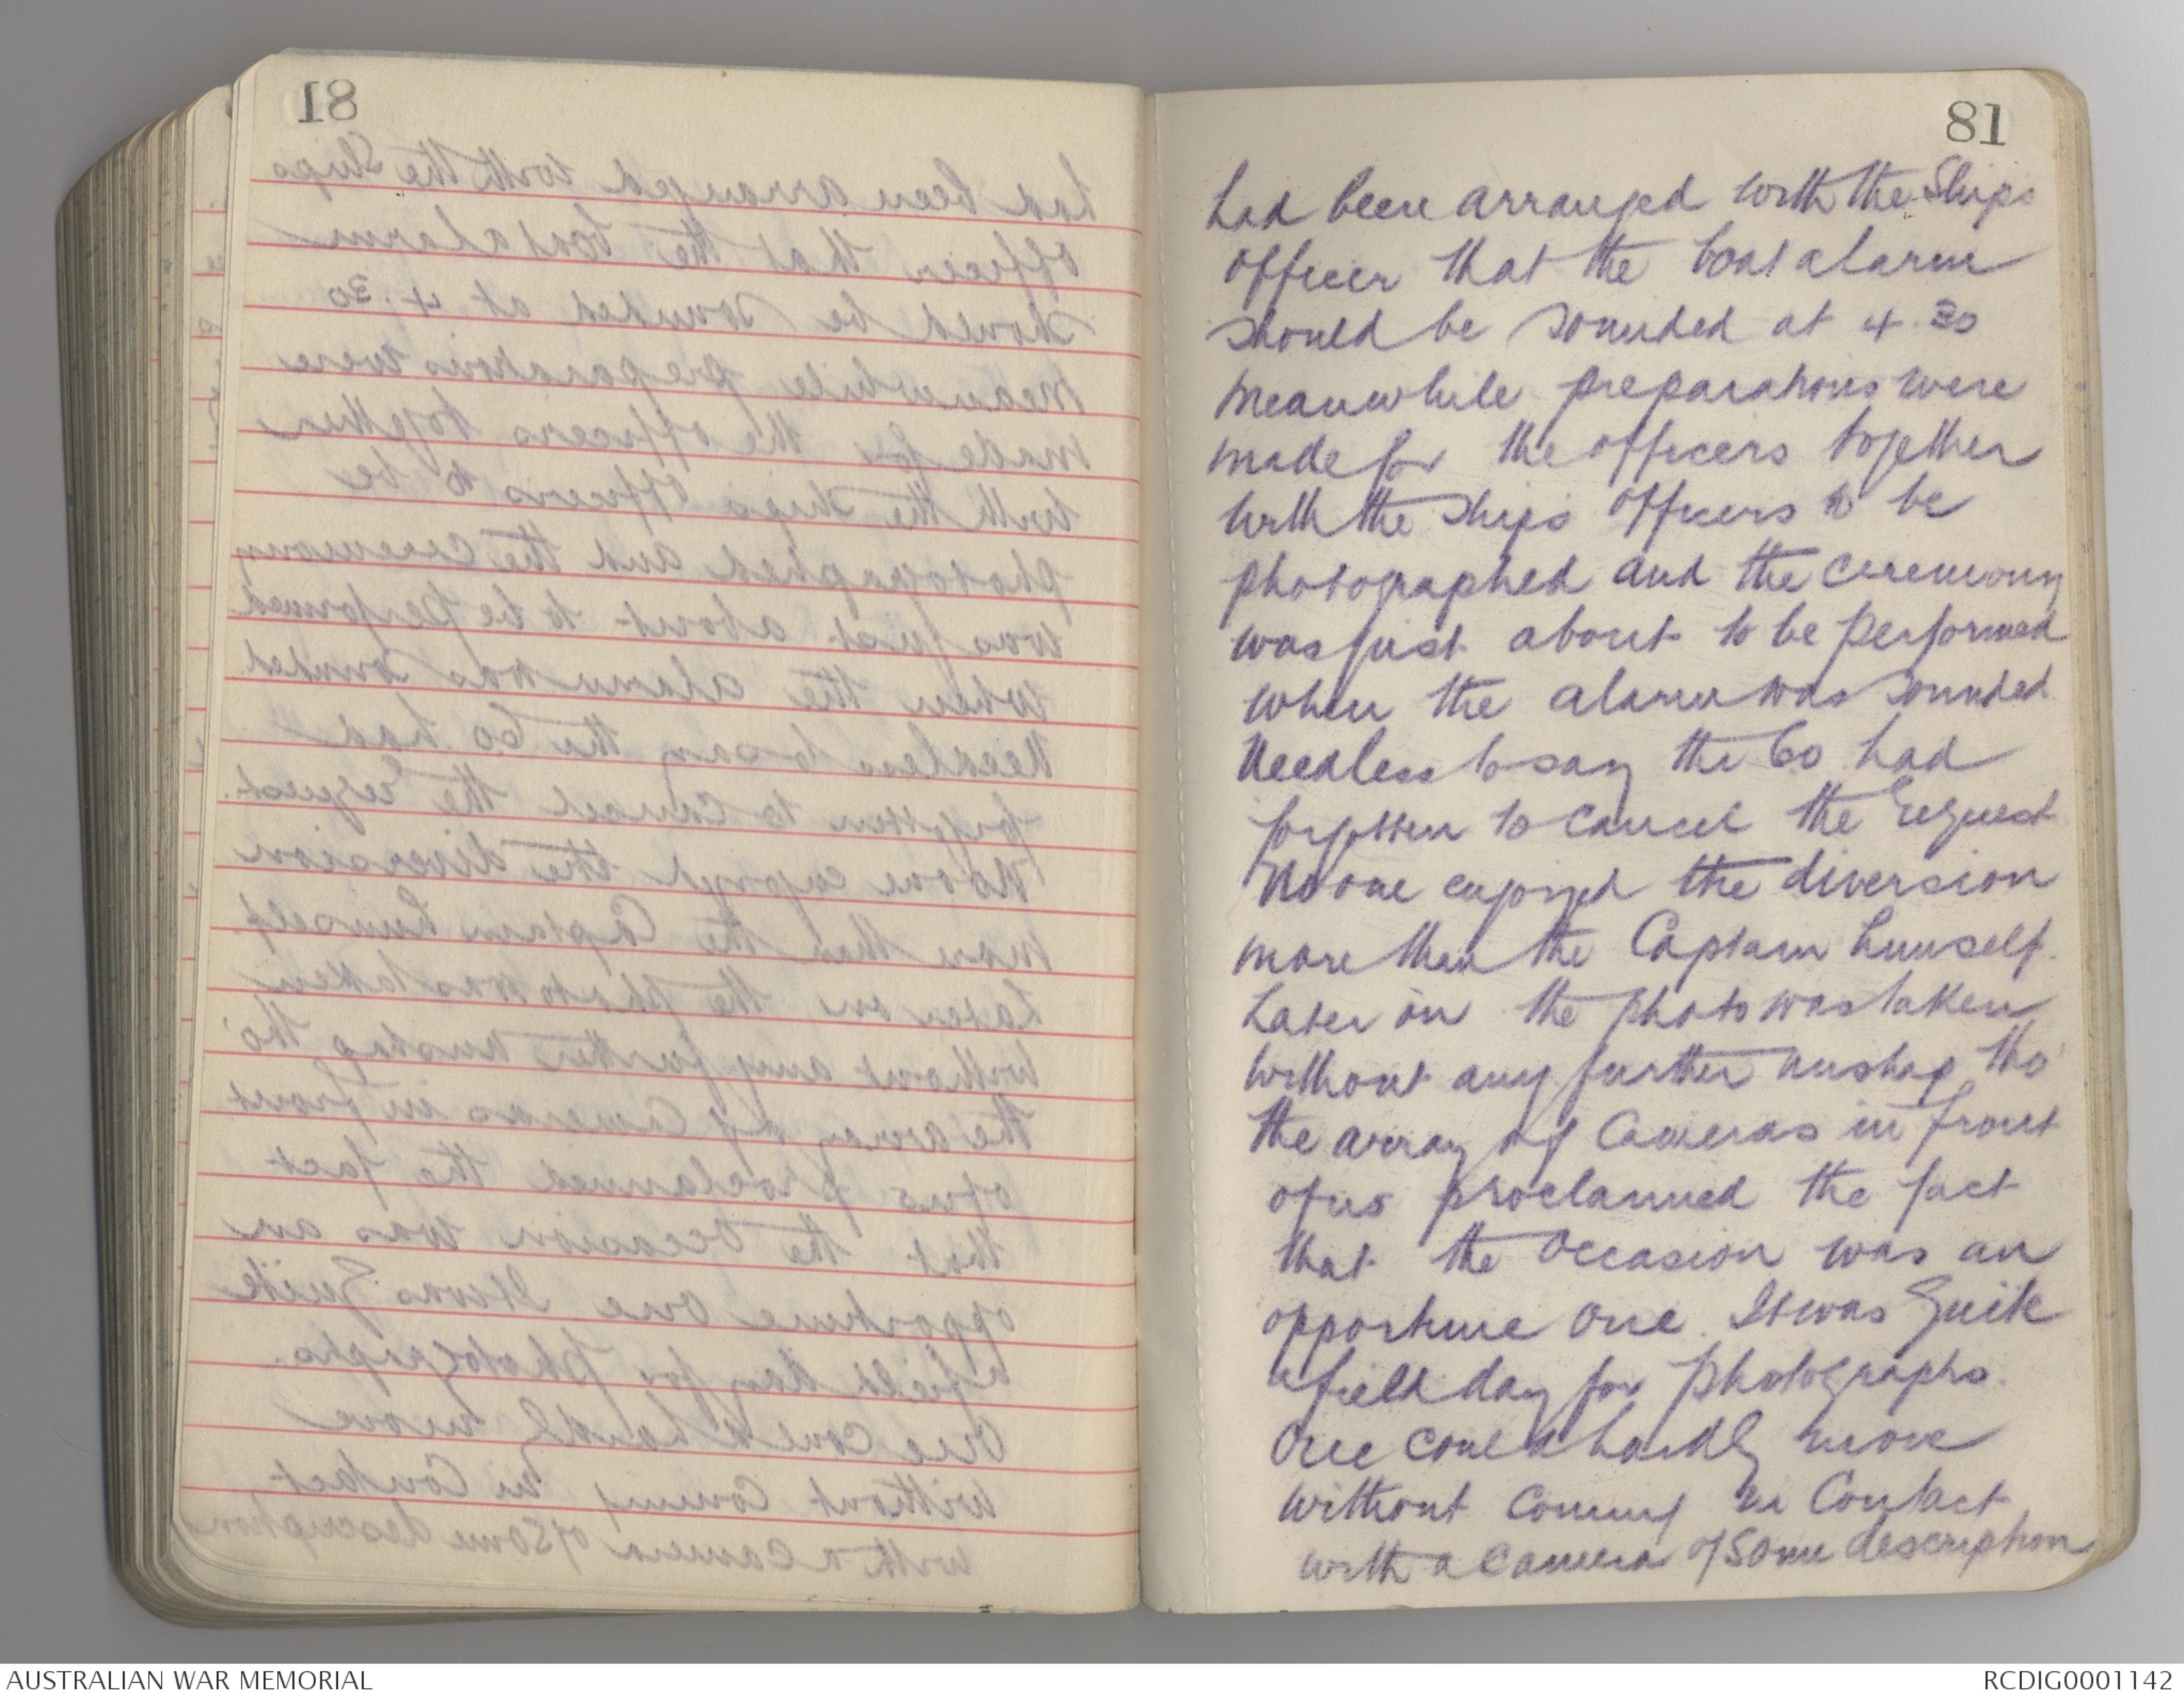 81
had been arranged with the Ships
officer that the boat alarm
should be sounded at 4.30
meanwhile preparations were
made for the officers together
with the ships officers to be
photographed and the ceremony
was just about to be performed
when the alarm was sounded
Needless to say the Co had
forgotten to cancel the request
No one enjoyed the diversion
more than the Captain himself.
Later on the photo was taken
without any further mishap tho'
the array of Cameras in front
of us proclaimed the fact
that the occasion was an
opportune one. It was Quite
a field day for photographs.
One could hardly move
without coming in Contact
with a camera of some description
AUSTRALIAN WAR MEMORIAL
RCDIG0001142